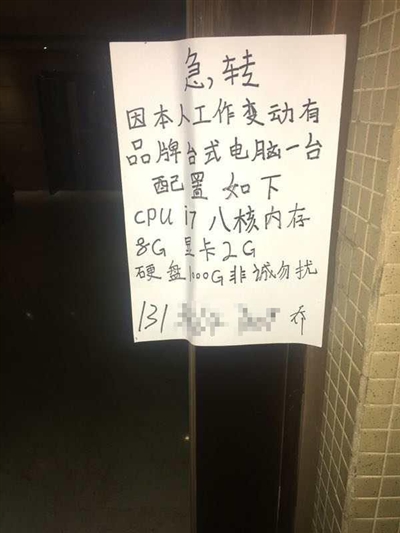 急,转
因本人工作变动有
品牌台式电脑一台
配置如下
CPU i7 八核内存
8G 显卡2G
硬盘1000G非诚勿扰
131